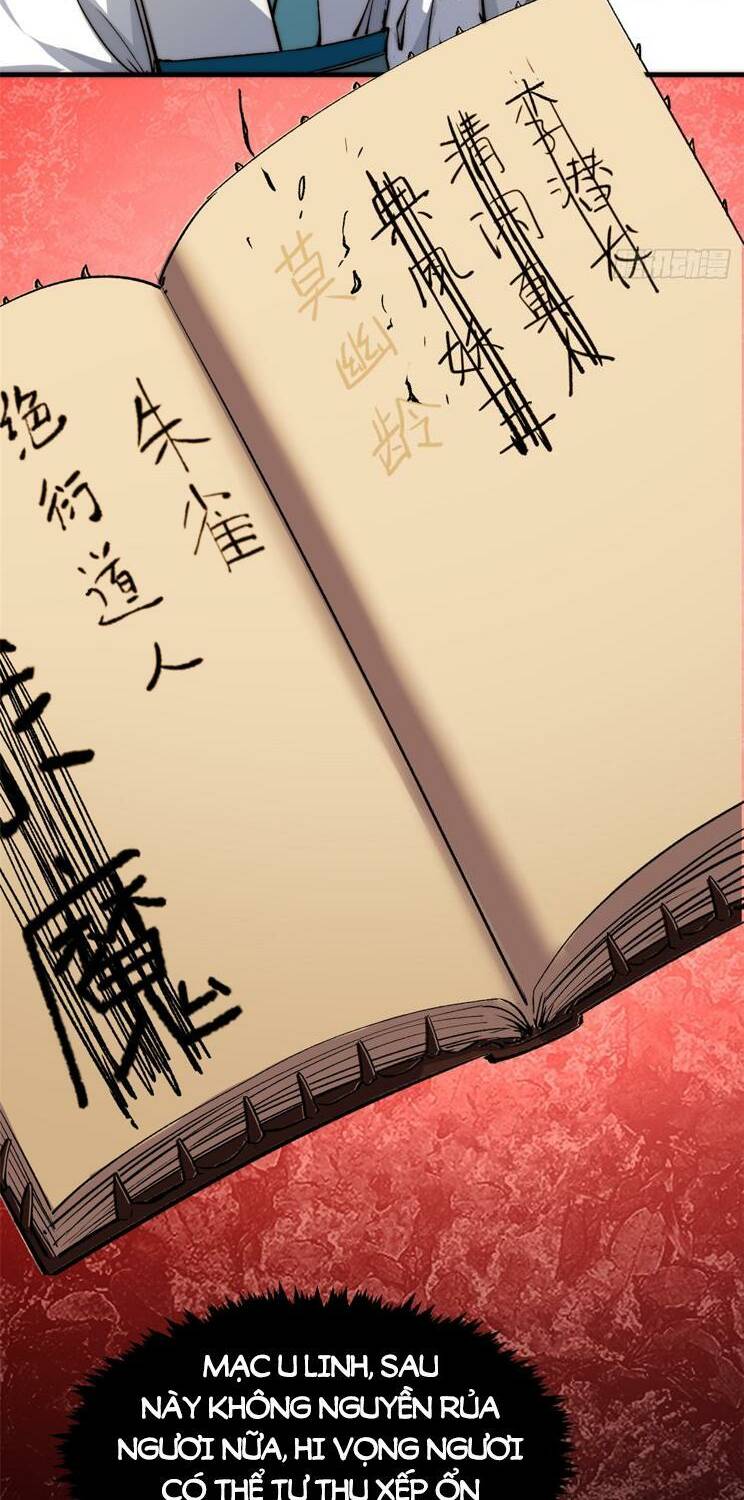 李潜伏
精洞真人
典风妖井
莫幽龄
朱雀
绝衍道人
魔
MẠC U LINH, SAU
NÀY KHÔNG NGUYỀN RỦA
NGƯƠI NỮA, HI VỌNG NGƯƠI
CÓ THỂ TỰ THU XẾP ỔN